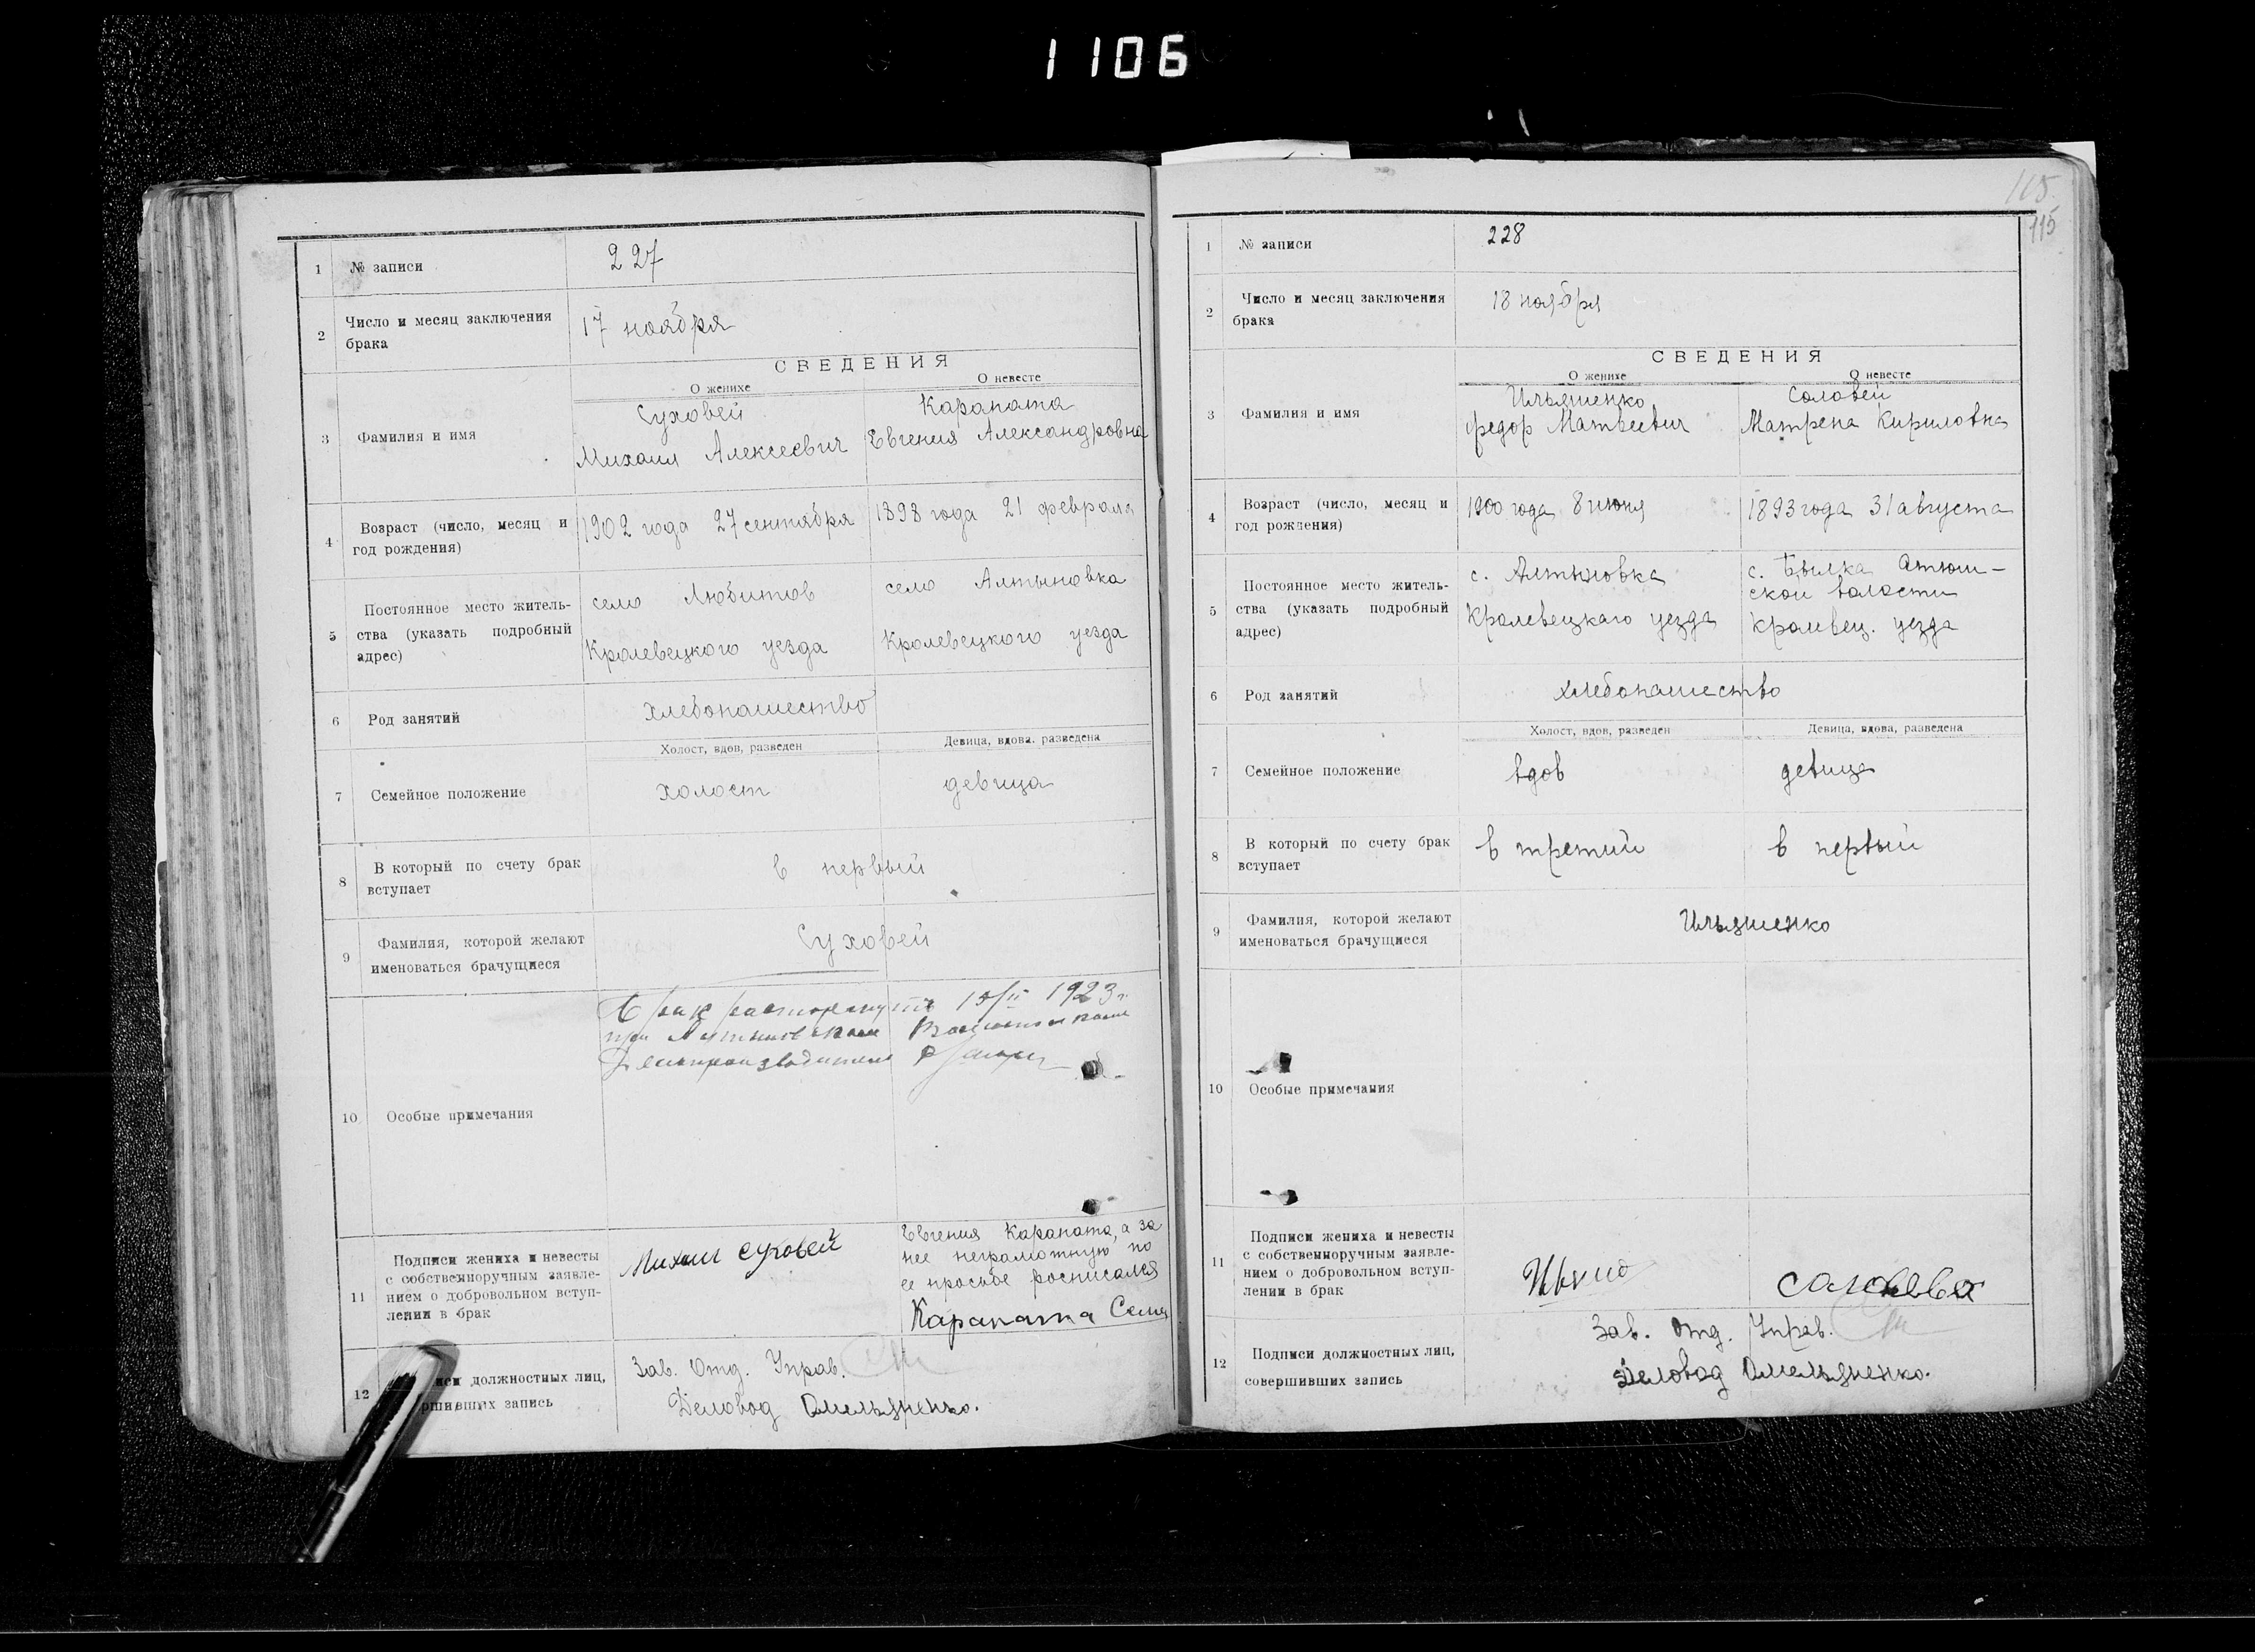 1106
1 № записи 227
2 Число и месяц заключения
брака
17 ноября
СВЕДЕНИЯ
О женихе О невесте
3 Фамилия и имя
Суховей Карапата
Михаил Алексеевич Евгения Александровна
4 Возраст (число, месяц и
год рождения)
1902 года 27 сентября 1898 года 21 февраля
5 Постоянное место житель-
ства (указать подробный
адрес)
село Любитов село Алтыновка
Кролевецкого уезда Кролевецкого уезда
6 Род занятий хлебопашество
Холост, вдов, разведен Девица, вдова, разведена
7 Семейное положение холост девица
8 В который по счету брак
вступает
в первый
9 Фамилия, которой желают
именоваться брачущиеся
Суховей
10 Особые примечания
Брак расторгнутъ 15/II 1923 г.
при
Делопроизводитель
11 Подписи жениха и невесты
с собственноручным заявле-
нием о добровольном вступ-
лении в брак
Михаил Суховей
Евгения Карапата, а за
нее неграмотную по
ее просьбе росписался
Карапата
12 должностных лиц,
запись
Зав. Отд. Управ.
Деловод Омельяненко.
115.
115
1 № записи 228
2 Число и месяц заключения
брака
18 ноября
СВЕДЕНИЯ
О женихе О невесте
3 Фамилия и имя
Ильяшенко Соловей
Федор Матвеевич Матрена Кириловна
4 Возраст (число, месяц и
год рождения)
1900 года 8 июня 1893 года 31 августа
5 Постоянное место житель-
ства (указать подробный
адрес)
с. Алтыновка с. Атюш-
ской волости
Кролевецкаго уезда Кролевец. уезда
6 Род занятий хлебопашество
Холост, вдов, разведен Девица, вдова, разведена
7 Семейное положение вдов девица
8 В который по счету брак
вступает
в третий в первый
9 Фамилия, которой желают
именоваться брачущиеся
Ильяшенко
10 Особые примечания
11 Подписи жениха и невесты
с собственноручным заявле-
нием о добровольном вступ-
лении в брак
12 Подписи должностных лиц,
совершивших запись
Зав. Отд. Управ.
Деловод Омельяненко.